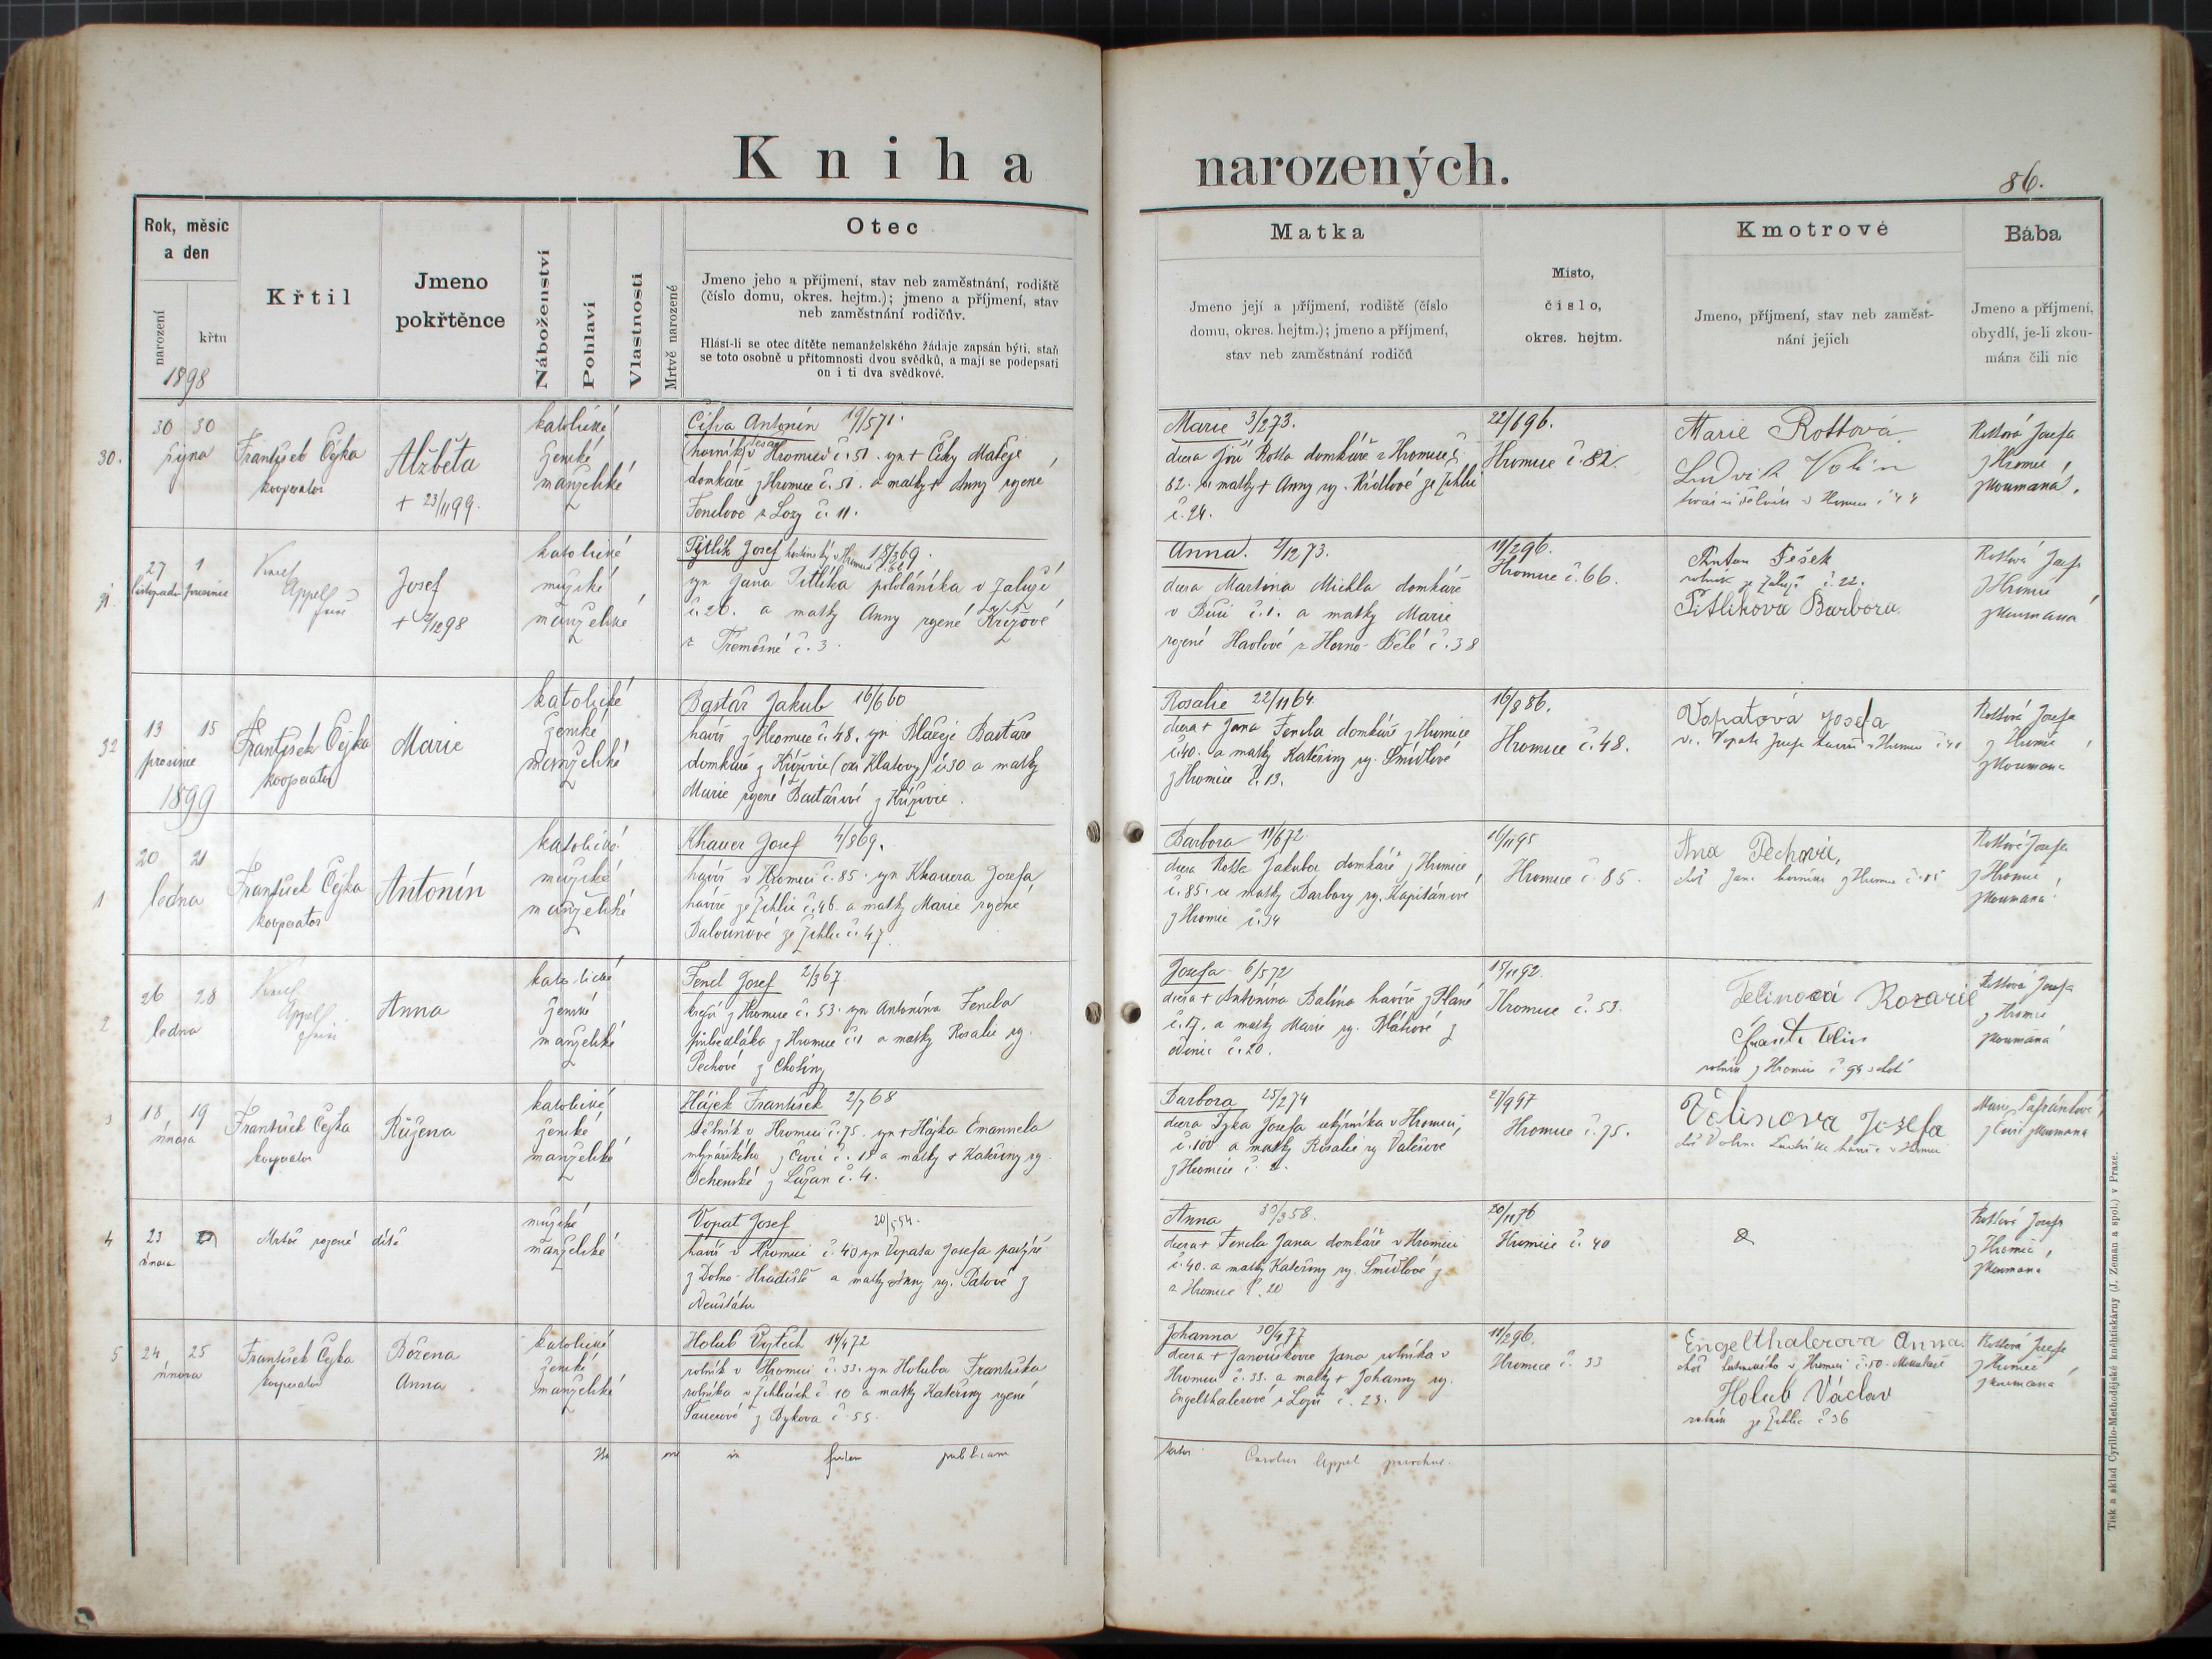 Kniha narozených.
86.
Rok, měsíc
a den
narození
křtu
1898
Křtil
Jmeno
pokřtěnce
Náboženství
Pohlaví
Vlastnosti
Mrtvě narozené
Otec
Jmeno jeho a přijmení, stav neb zaměstnání, rodiště
(číslo domu, okres. hejtm.); jmeno a příjmení, stav
neb zaměstnání rodičův.
Hlásí-li se otec dítěte nemanželského žádaje zapsán býti, staň
se toto osobně u přítomnosti dvou svědků, a mají se podepsati
on i ti dva svědkové.
Matka
Jmeno její a příjmení, rodiště (číslo
domu, okres. hejtm.); jmeno a příjmení,
stav neb zaměstnání rodičů
Místo,
číslo,
okres. hejtm.
Kmotrové
Jmeno, příjmení, stav neb zaměst-
nání jejich
Bába
Jmeno a příjmení,
obydlí, je-li zkou-
mána čili nic
30.
30 30
října
František Čejka
kooperator
Alžběta
+ 23/11 99.
katolické
ženské
manželské
Antonín 19/5 71.
v Hromici č. 51. syn +
domkáře z Hromice č. 51. a matky + Anny rozené
Fenclové z Lozy č. 11.
Marie 3/2 73.
dcera Rotta domkáře z Hromice č.
82. a matky + Anny roz.
č. 24.
22/1 96.
Hromice č. 82.
Marie Rottová
Ludvik Volín
Rottová Josefa
z Hromic,
zkoumaná.
31.
27 1
listopadu prosince
Karel
Appel
Josef
+ 2/12 98
katolické
mužské
manželské
Pytlík Josef 18/3 69.
syn Jana Pitlíka v Zaluží
č. 20. a matky Anny rozené Křížové
z Třemošné č. 3.
Anna. 2/12 73.
dcera Martina Michla domkáře
č. 1. a matky Marie
rozené z Horno-Bělé č. 38
11/2 96.
Hromice č. 66.
Anton Pešek
rolník ze Zaluží č. 22.
Pitliková Barbora.
Rottová Josefa
z Hromic
zkoumaná
32
13 15
prosince
1899
František Čejka
kooperator
Marie
katolické
ženské
manželské
Bastář Jakub 16/6 60
havíř z Hromice č. 48. syn Matěje Bastáře
domkáře z (okr. Klatovy) č. 30 a matky
Marie rozené Bastářové z
Rosalie 22/11 64.
dcera + Jana Fencla domkáře z Hromice
č. 40. a matky Kateřiny roz. Šmídlové
z Hromice č. 13.
16/8 86.
Hromice č. 48.
Vopatová Josefa
Rottová Josefa
z Hromic,
zkoumaná
1
20 21
ledna
František Čejka
kooperator
Antonín
katolické
mužské
manželské
Khauer Josef 4/8 69.
havíř v Hromici č. 85. syn Khauera Josefa
havíře ze Žihlic č. 46. a matky Marie rozené
Balounové ze Žihlic č. 47.
Barbora 11/6 72.
dcera Rotta Jakuba domkáře z Hromice
č. 85. a matky Barbory roz. Kapitánové
z Hromic č. 34
16/11 95
Hromice č. 85.
Ana Pechová,
Rottová Josefa
z Hromic,
zkoumaná.
2
26 28
ledna
Karel
Appel
Anna
katolické
ženské
manželské
Fencl Josef 2/3 67
krejčí z Hromice č. 53. syn Antonína Fencla
z Hromice č. 1 a matky Rosalie roz.
Pechové z Chotiny
Josefa 6/5 72
dcera + Antonína Balína havíře z Plané
č. 17. a matky Marie roz. Bláhové z
č. 20.
15/11 92.
Hromice č. 53.
Velinová Rozarie
rolník z Hromic č. 94
Rottová Josefa
z Hromic
zkoumaná
3
18 19
února
František Čejka
kooperator
Růžena
katolické
ženské
manželské
Hájek František 2/7 68
dělník v Hromici č. 75. syn + Hájka Emanuela
mlynářského č. 18 a matky + Kateřiny roz.
z Lužan č. 4.
Barbora 25/2 74
dcera Josefa v Hromici,
č. 100 a matky Rosalie roz. Valešové
z Hromice č.
27/9 97
Hromice č. 75.
Volinova Josefa
zkoumaná
4
23
února
Mrtvě rozené dítě
mužské
manželské
Vopat Josef 20/5 54.
havíř v Hromici č. 40 syn Vopata Josefa pastýře
z Dolno-Hradiště a matky Anny roz. Patové z
Neustátu
Anna 30/3 58.
dcera + Fencla Jana domkáře v Hromici
č. 40. a matky Kateřiny roz. Šmídlové z
z Hromice č. 20
20/11 76
Hromice č. 40
Rottová Josefa
z Hromic,
zkoumaná
5
24 25
února
František Čejka
kooperator
Božena
Anna
katolické
ženské
manželské
Holub Vojtěch 14/4 72
rolník v Hromici č. 33. syn Holuba Františka
rolníka v Žihlicích č. 10 a matky Kateřiny rozené
Sauerové z Dýkova č. 55.
Johanna 30/4 77
dcera + Janouškovce Jana rolníka v
Hromici č. 33. a matky + Johanny roz.
Engelthalerové z č. 23.
11/2 96.
Hromice č. 33
Engelthalerova Anna
Holub Václav
rolník ze Žihlic č. 36
Rottová Josefa
z Hromic
zkoumaná
in fidem publicam
Carolus Appel parochus.
Tisk a sklad Cyrillo-Methodějské knihtiskárny (J. Zeman a spol.) v Praze.